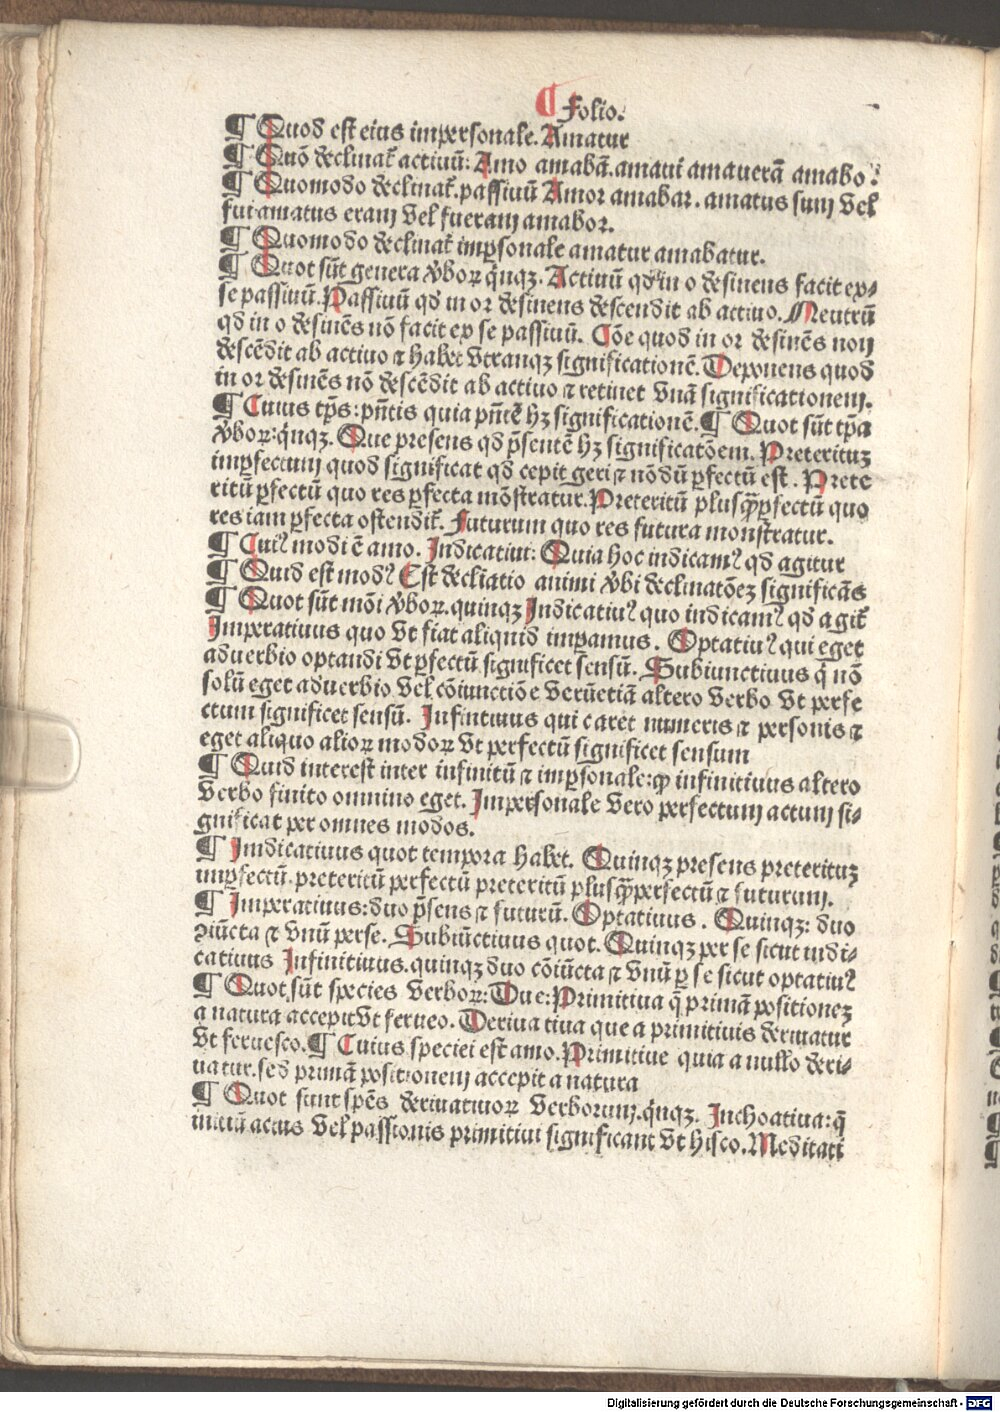 ¶ Folio.
¶ Quod est eius impersonale. Amatur
¶ Quō declinat̄ actiuū: Amo amabā. amaui amauerā amabo.
¶ Quomodo declinat̄. passiuū Amor amabar. amatus sum vel
fui amatus eram vel fueram amabor.
¶ Quomodo declinat̄ imꝑsonale amatur amabatur.
¶ Quot sūt genera v̄boꝝ q̄nqꝫ. Actiuū qd̄ in o desinens facit ex-
se passiuū. Passiuū qd̄ in or desinens descendit ab actiuo. Neutrū
qd̄ in o desinēs nō facit ex se passiuū. Cōe quod in or desinēs non
descēdit ab actiuo ⁊ habet vtranqꝫ significationē. Deponens quod
in or desinēs nō descēdit ab actiuo ⁊ retinet vnā significationem.
¶ Cuius tp̄s: pn̄tis quia pn̄tē hꝫ significationē. ¶ Quot sūt tp̄a
v̄boꝝ: q̄nqꝫ. Que presens qd̄ p̄sentē hꝫ significatōem. Preterituꝫ
imꝑfectum quod significat qd̄ cepit geri ⁊ nōdū ꝑfectū est. Prete
ritū ꝑfectū quo res ꝑfecta mōstratur. Preteritū plusꝙꝑfectū quo
res iam ꝑfecta ostendit̄. Futurum quo res futura monstratur.
¶ Cuiꝰ modi ē amo. Indicatiui: Quia hoc indicamꝰ qd̄ agitur
¶ Quid est modꝰ Est decliatio animi v̄bi declinatōeꝫ significās
¶ Quot sūt mōi v̄boꝝ. quinqꝫ Indicatiuꝰ quo indicamꝰ qd̄ agit̄
Imperatiuus quo vt fiat aliquid imꝑamus. Optatiuꝰ qui eget
aduerbio optandi vt ꝑfectū significet sensū. Subiunctiuus q̄ nō
solū eget aduerbio vel cōiunctiōe verūetiā altero verbo vt perfe
ctum significet sensū. Infinitiuus qui caret numeris ⁊ personis ⁊
eget aliquo alioꝝ modoꝝ vt perfectū significet sensum
¶ Quid interest inter infinitū ⁊ imꝑsonale: ꝙ infinitiuus altero
verbo finito omnino eget. Impersonale vero perfectum actum si-
gnificat per omnes modos.
¶ Imdicatiuus quot tempora habet. Quinqꝫ presens preterituꝫ
imꝑfectū. preteritū perfectū preteritū plusꝙperfectū ⁊ futurum.
¶ Imperatiuus: duo p̄sens ⁊ futurū. Optatiuus. Quinqꝫ: duo
ꝯiūcta ⁊ vnū perse. Subiūctiuus quot. Quinqꝫ per se sicut indi-
catiuus Infinitiuus. quinqꝫ duo cōiūcta ⁊ vnū ꝑ se sicut optatiuꝰ
¶ Quot sūt species verboꝝ: Due: Primitiua q̄ primā positioneꝫ
a natura accepit vt ferueo. Deriua tiua que a primitiuis deriuatur
vt feruesco. ¶ Cuius speciei est amo. Primitiue quia a nullo deri-
uatur. sed primā positionem accepit a natura
¶ Quot sunt spēs deriuatiuoꝝ verborum. q̄nqꝫ. Inchoatiua: q̄
initiū actus vel passionis primitiui significant vt hisco. Meditati
Digitalisierung gefördert durch die Deutsche Forschungsgemeinschaft - DFG